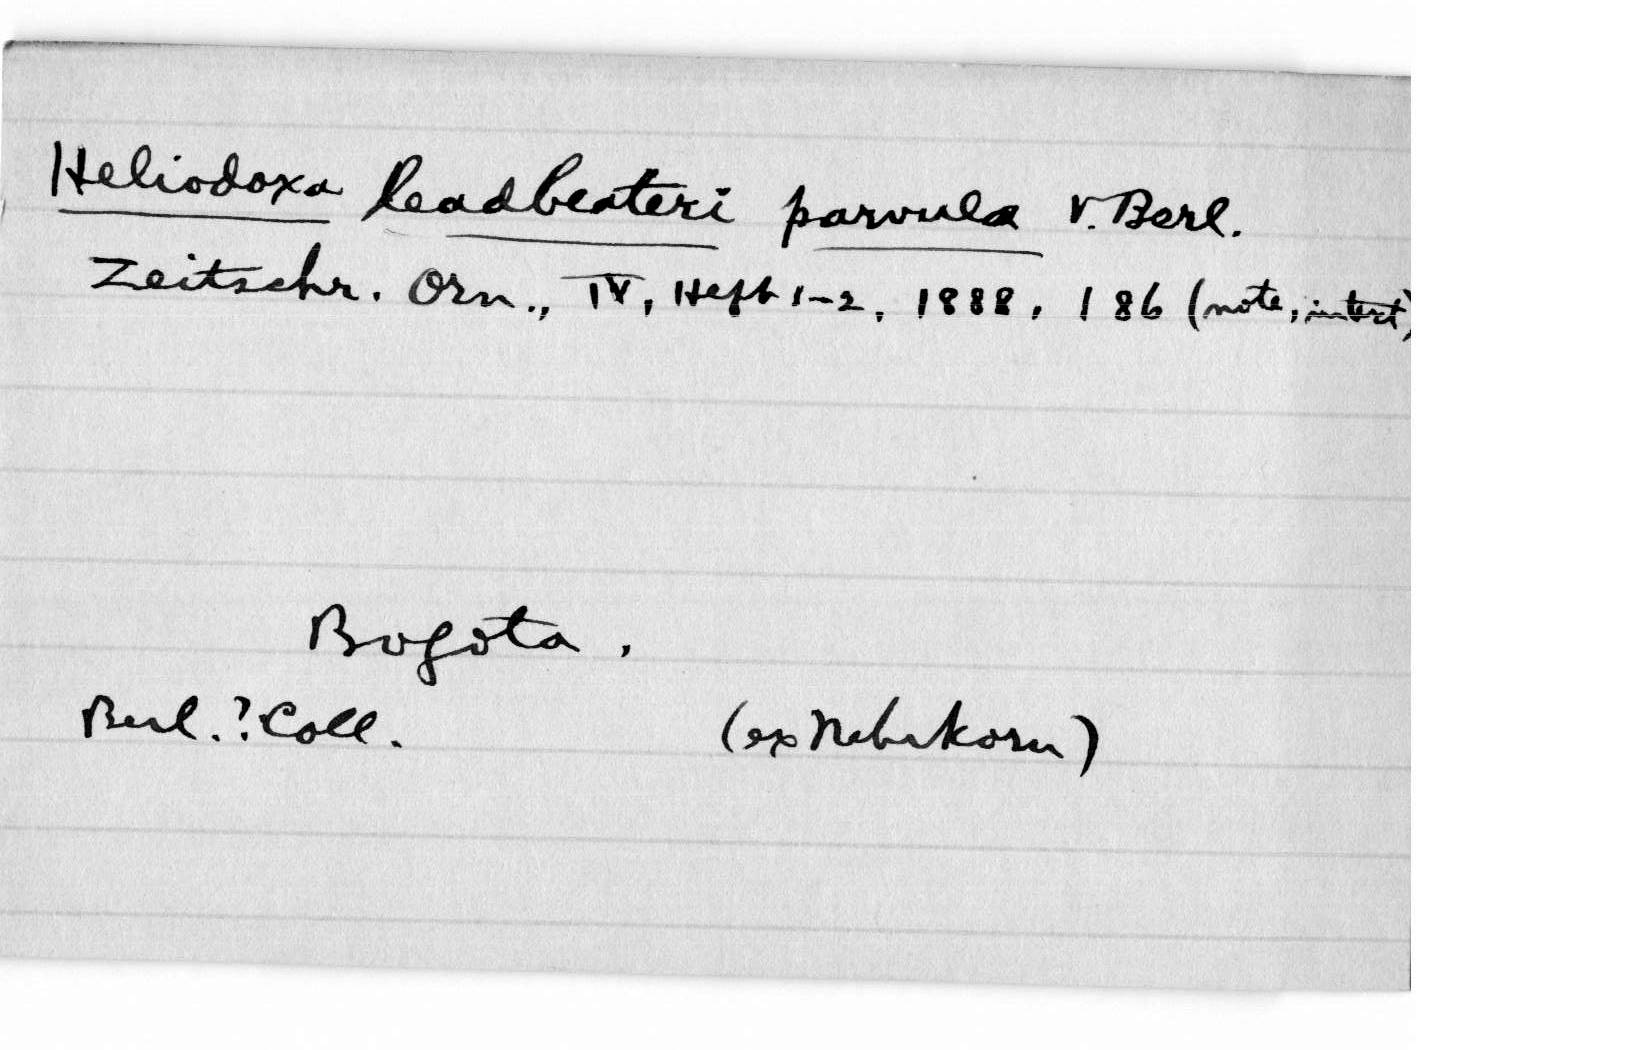 Heliodoxa leadbeateri parvula v. Berl.
Zeitschr. Orn., IV, Heft 1-2, 1888, 186 (note, in text)
Bogota,
Berl.? Coll. (ex Nehrkorn)